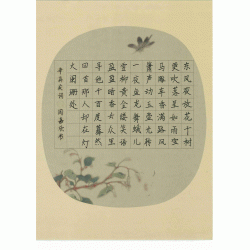 东风夜放花千树
更吹落星如雨宝
马雕车香满路凤
箫声动玉壶光转
一夜鱼龙舞蛾儿
雪柳黄金缕笑语
盈盈暗香去众里
寻他千百度蓦然
回首那人却在灯
火阑珊处
辛弃疾词